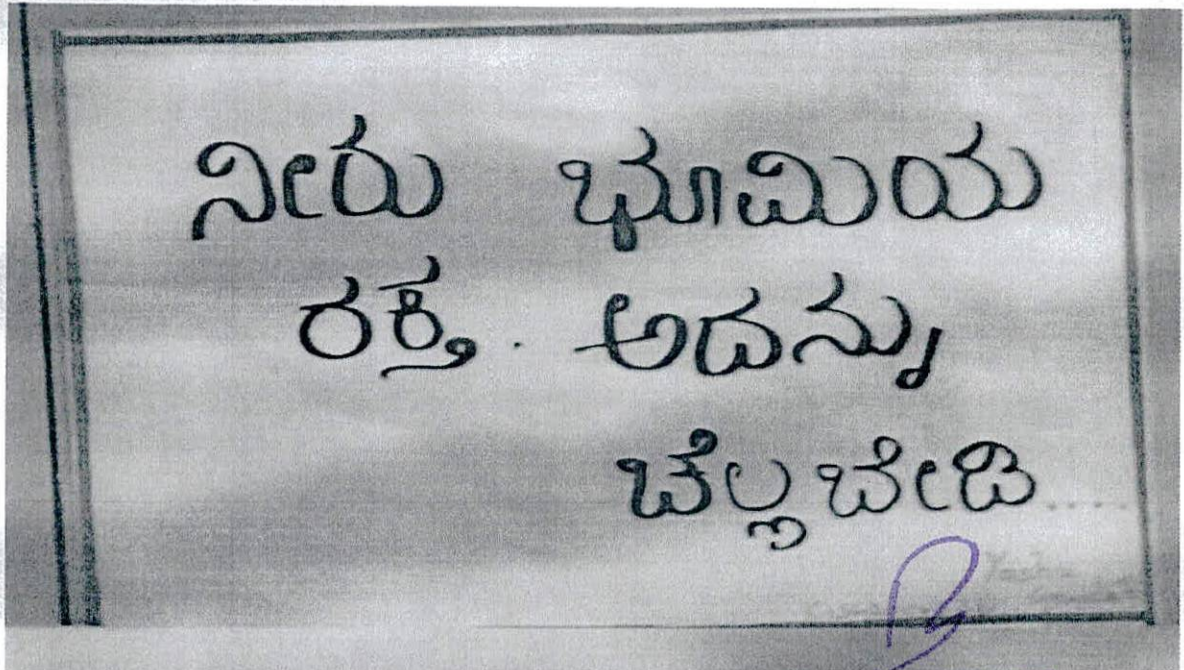 ನೀರು ಭೂಮಿಯ
ರಕ್ತ. ಅದನ್ನು
ಚೆಲ್ಲಬೇಡಿ.....